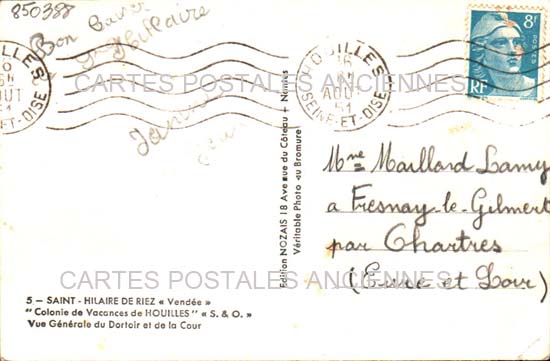 850388
Bon baiser
St Hilaire
HOUILLES
16 H
AOUT
51
SEINE-ET-OISE
8F
RF
CARTES POSTALES ANCIENNES
Mme Maillard Lamy
a Fresnay-le-Gilmert
par Chartres
(Eure et Loir)
Edition NOZAIS 18 Avenue du Côteau + Nantes
Véritable Photo au Bromure
CARTES POSTALES ANCIENNES
5 — SAINT - HILAIRE DE RIEZ « Vendée »
"Colonie de Vacances de HOUILLES" « S. & O. »
Vue Générale du Dortoir et de la Cour